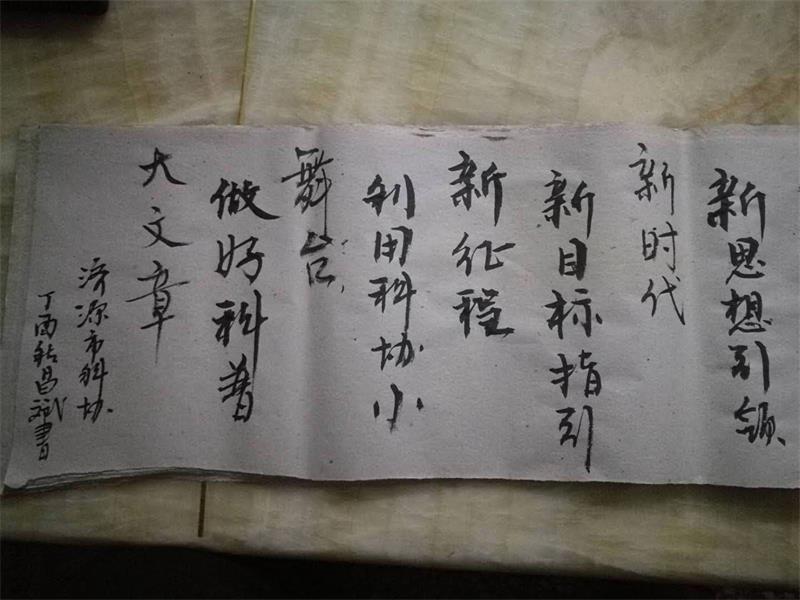 新思想引领
新时代
新目标指引
新征程
利用科协小
舞台
做好科普
大文章
济源市科协
丁酉秋昌斌书